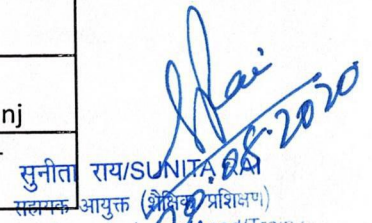 nj
Rai
28.2020
सुनीता राय/SUNITA RAI
सहायक आयुक्त (शैक्षिक/प्रशिक्षण)